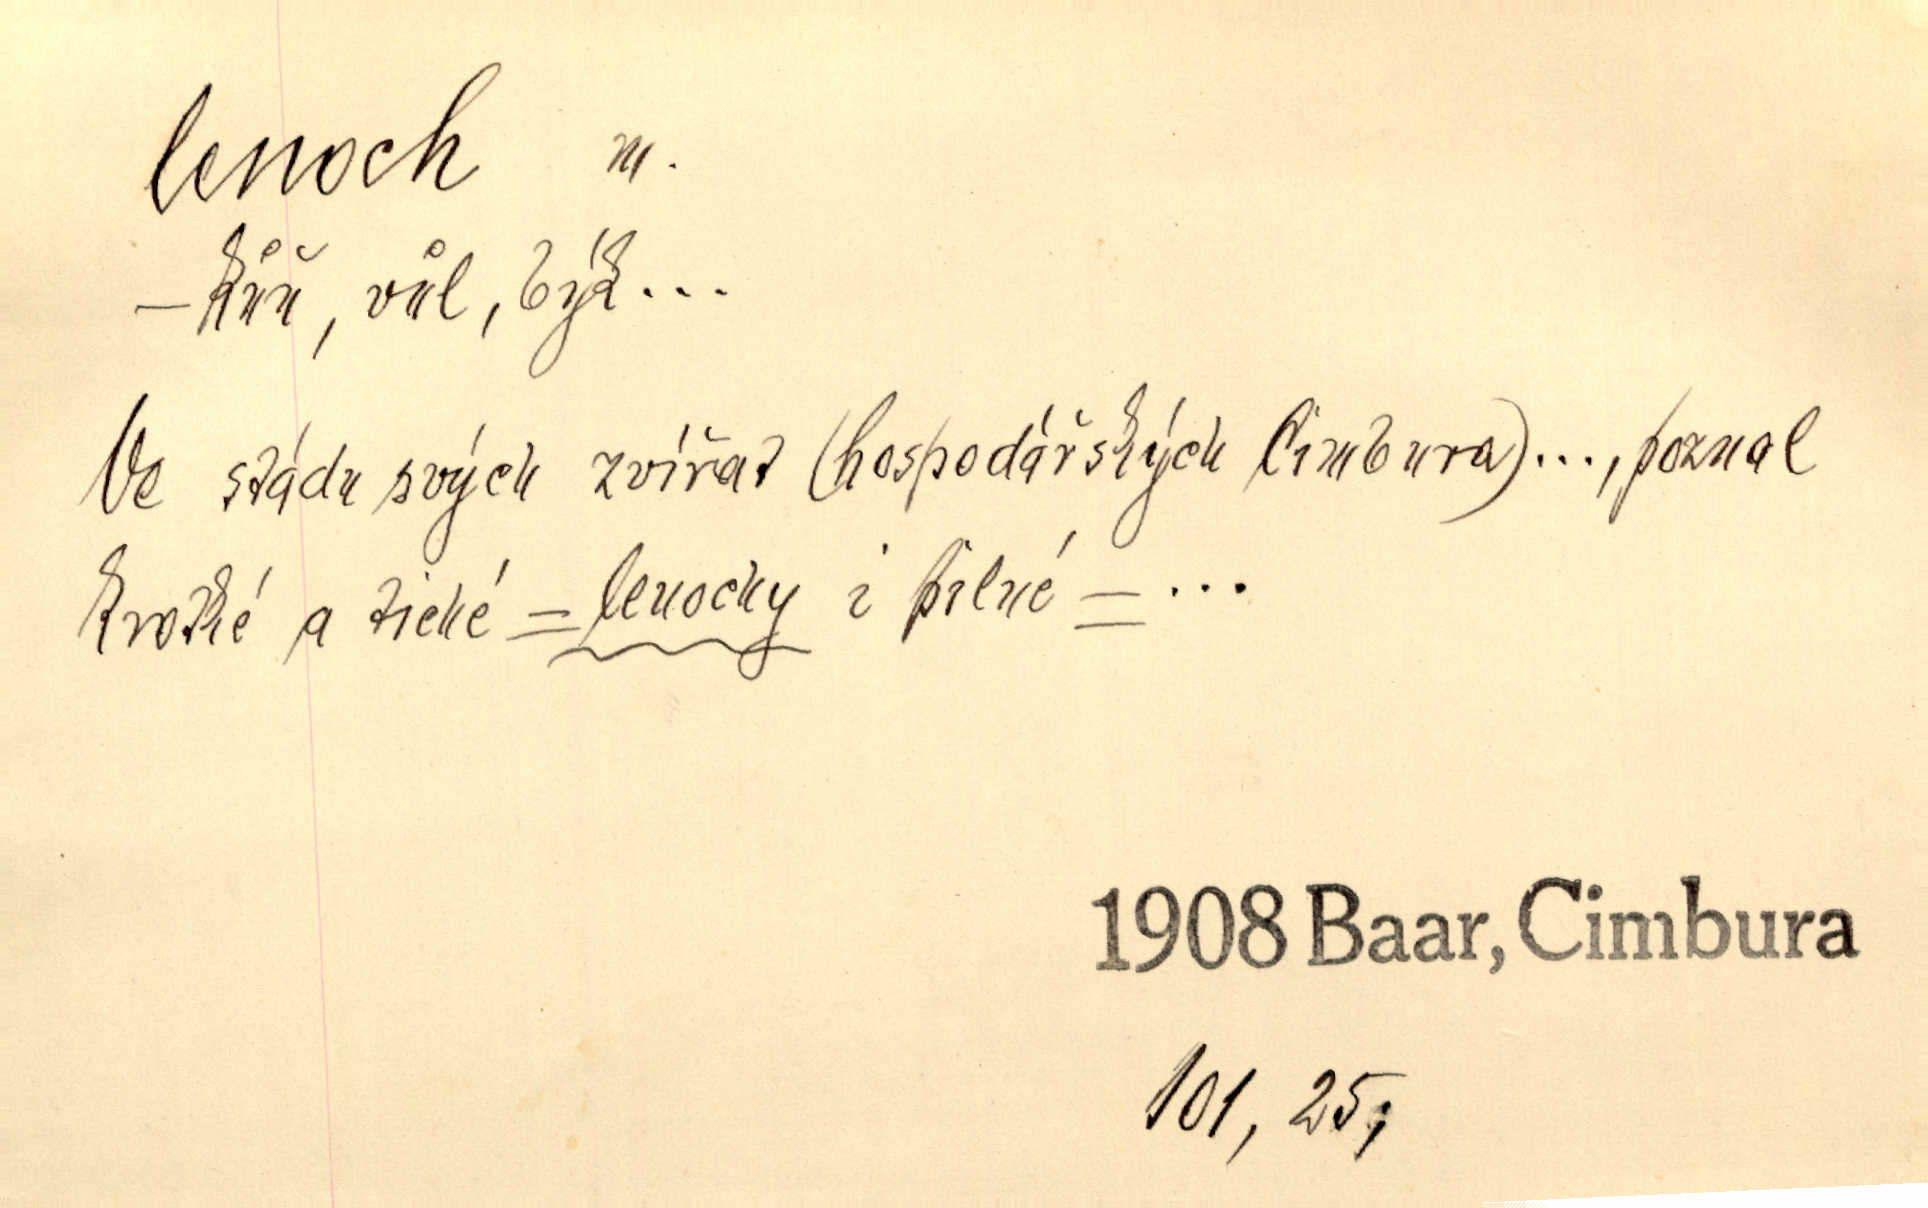 lenoch m.
– kůň, vůl, býk...
Ve stádu svých zvířat (hospodářských Cimbura)..., poznal
krotké a tiché = lenochy i pilné = ...
1908 Baar, Cimbura
101, 25;